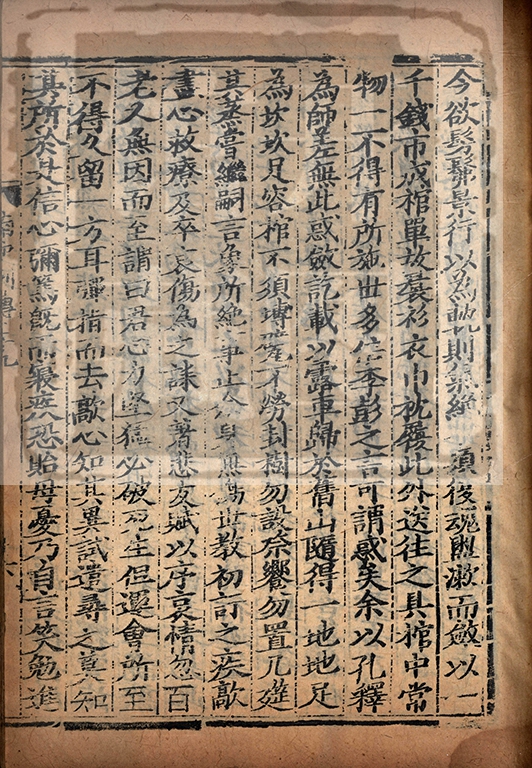 今欲髣髴景行以為軌則氣絶 須復魂盥漱而斂以一
千錢市成棺單故裠衫衣巾枕履此外送往之具棺中常
物一不得有所施世多信李彭之言可謂惑矣余以孔釋
為師差無此惑斂訖載以露車歸於舊山隨得一地地足
為坎坎足容棺不須塼甓不勞封樹勿設祭饗勿置几筵
其蒸嘗繼嗣言象所絶事止余身無傷世教初訏之疾歊
盡心救療及卒哀傷為之誄又著悲友賦以序哀情忽百
老又無因而至謂曰君心力堅猛必破死生但運會所至
不得久留一方耳彈指而去歊心知其異試遣尋之莫知
其所於是信心彌篤旣而寢疾恐貽母憂乃自言笑勉進